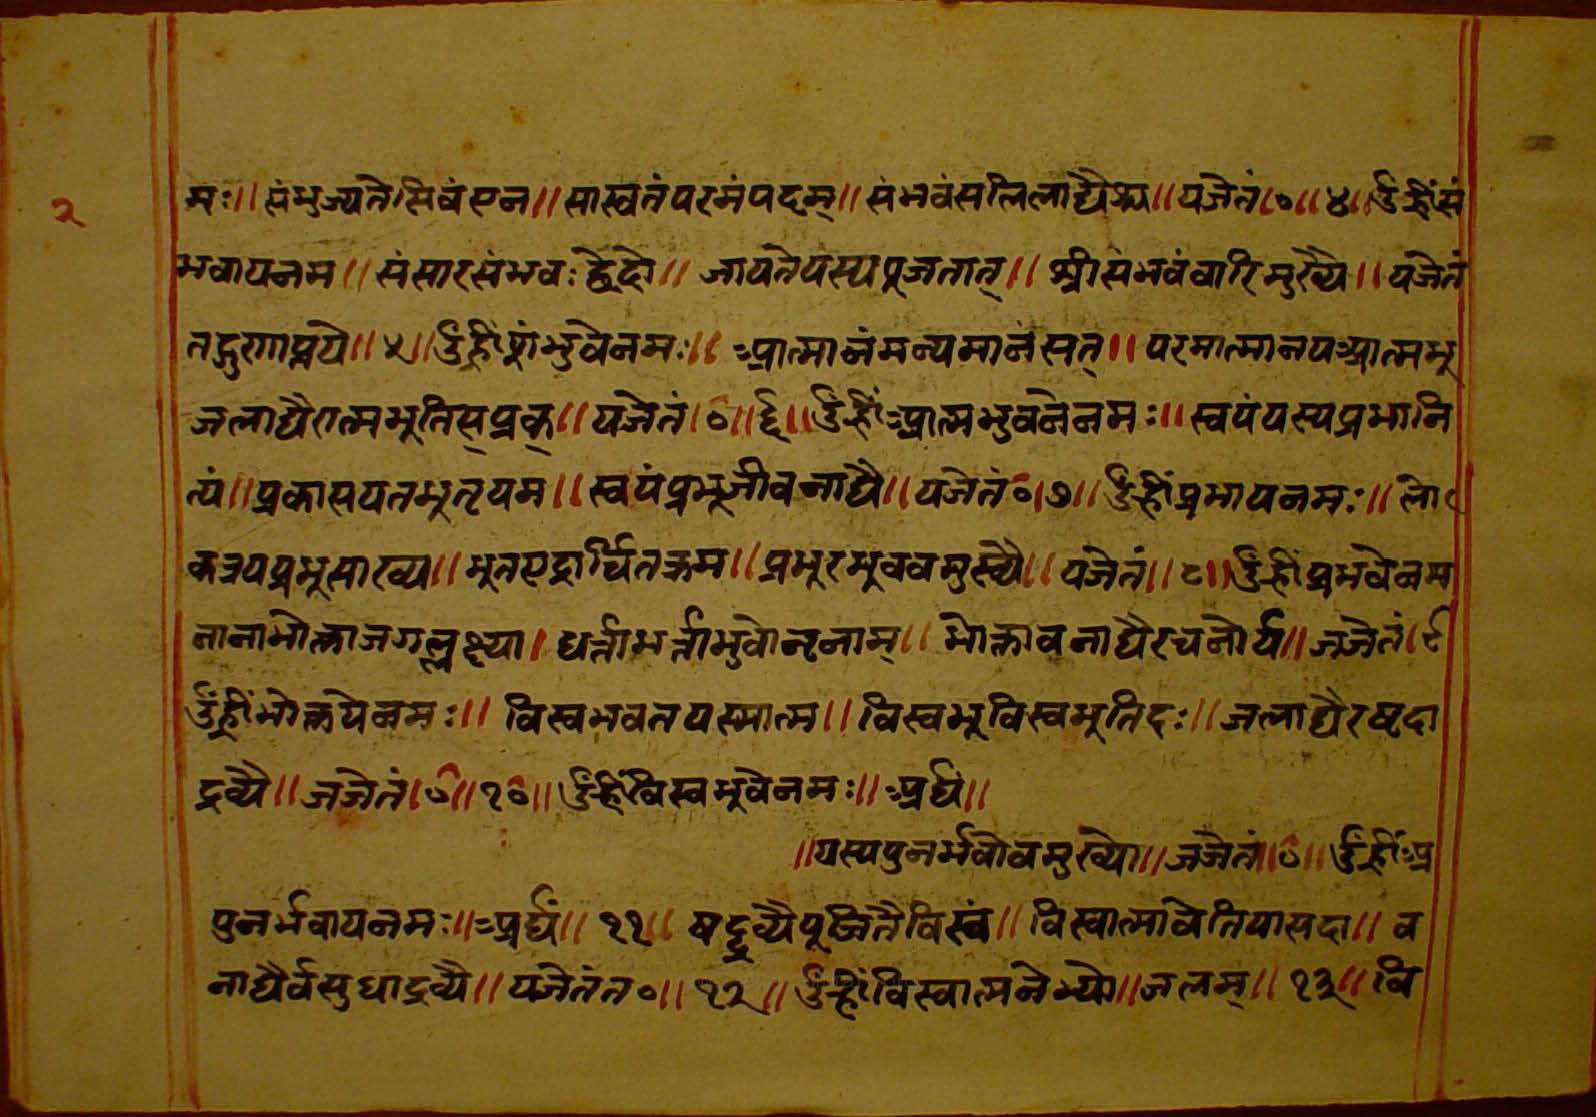 २
मः॥ संभुज्यते सिवं एन॥ सास्वतं परमं पदम्॥ संभवं सलिलाद्यैऋ्य॥ यजेतं।०॥४॥ उँ ह्रीं सं
भवायनम॥ संसारसंभवः द्वेदो॥ जायतेयस्यपुजतात्॥ श्रीसंभवंवारिमुख्यै॥ यजेतं
तद्गुरणाप्नये॥५॥ उँ ह्रीं शंभुवेनमः॥ अात्मानंमन्यमानंसत्॥ परमात्मानपअात्मभू
जलाद्यैरात्मभुतिस्प्रक्॥ यजेतं।०॥६॥ उँ ह्रीं अात्मभुवनेनमः॥ स्वयंयस्यप्रभानि
त्यं॥ प्रकासयतभुतृयम॥ स्वयंप्रभूजीवनाद्यै॥ यजेतं०।७॥ उँ ह्रीं प्रभायनमः॥ लो
कत्रयप्रभूसाख्य॥ भुतएद्रार्चितक्रम॥ प्रभुरभूववमुख्यै॥ यजेतं॥८॥ उँ ह्रीं प्रभवेनम
नानाभोक्ताजगल्लक्ष्या। धर्त्ताभर्त्ताभुवोनृनाम्॥ भोक्तावनाद्यैरचनोर्य॥ जजेतं।९
उँ ह्रीं भोक्तयेनमः॥ विस्वभवतयस्मात्म॥ विस्वभूविस्वभूतिदः॥ जलाद्यैरष्टदा
द्रव्यै॥ जजेतं।०॥१०॥ उँ ह्रीं विस्वभुवेनमः॥ अर्घं॥
॥यस्यपुनर्भवोवमुख्यो॥ जजेतं॥०॥ उँ ह्रीं अ
पुनर्भवायनमः॥ अर्घं॥ ११॥ षद्द्रव्यैपुजितैविस्वं॥ विस्वात्मावेतियासदा॥ व
नाद्यैर्वसुधाद्रव्यै॥ यजेतंत०॥ १२॥ उँ ह्रीं विस्वात्मनेभ्यो॥ जलम्॥ १३॥ वि